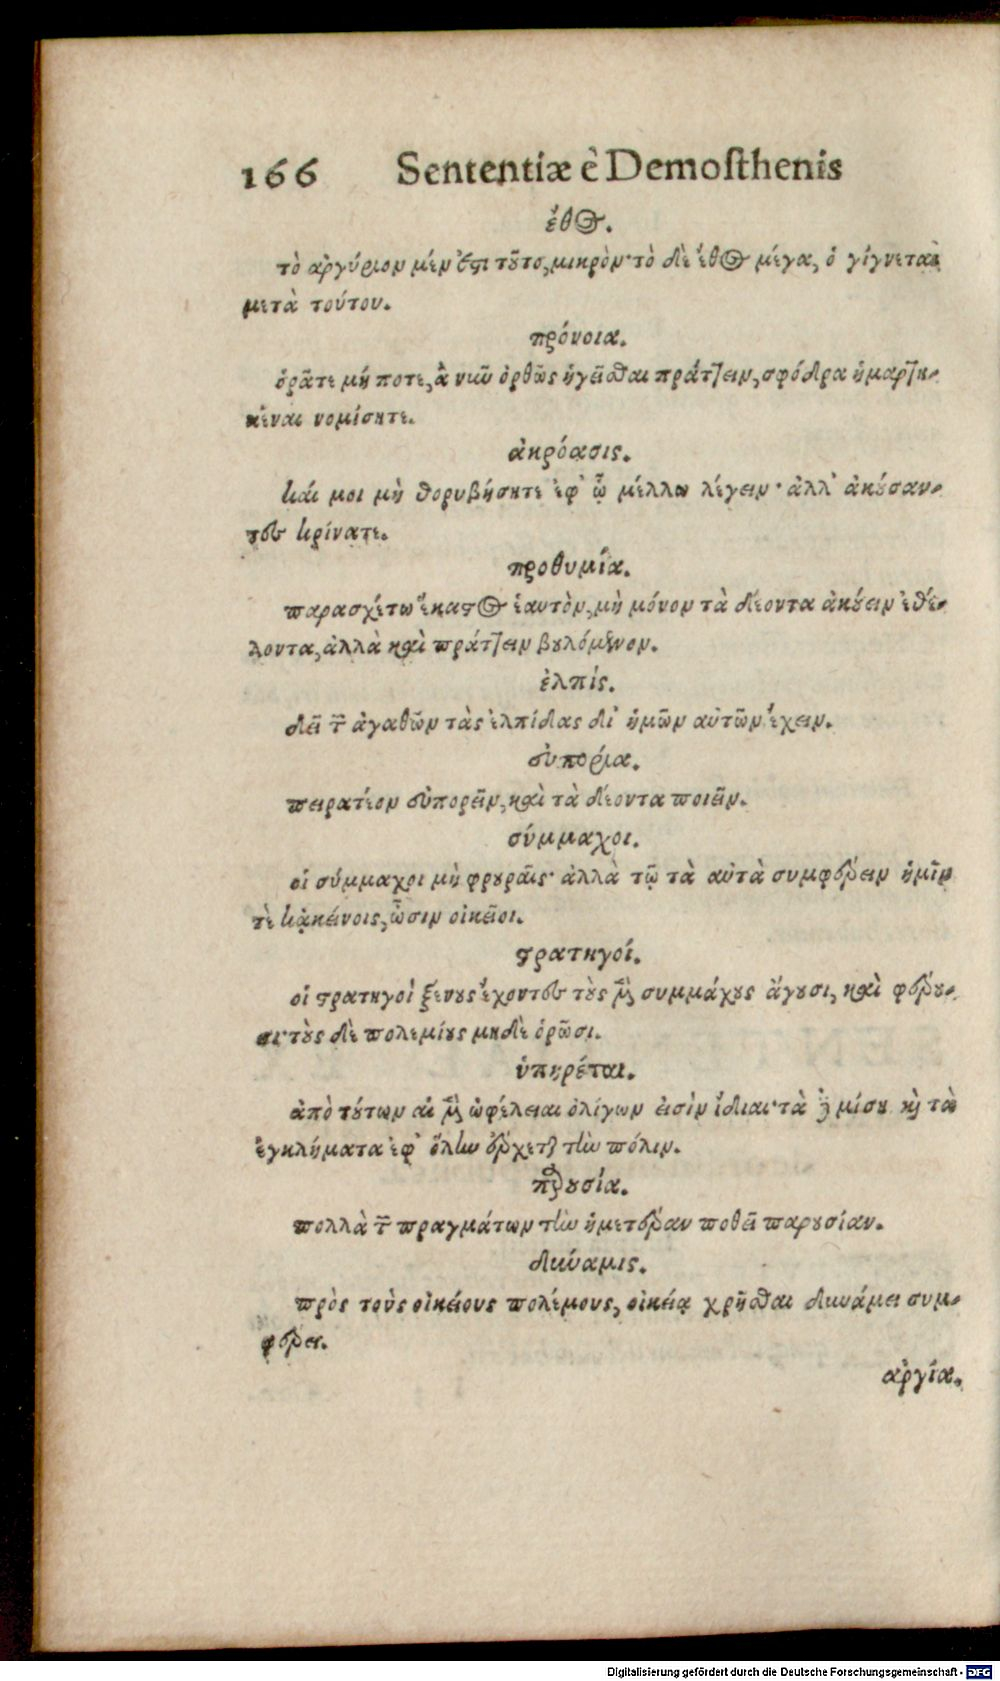 166 Sententiæ è Demosthenis
ἔθος.
τὸ ἀργύριον μέν ἐστι τοῦτο, μικρὸν· τὸ δὲ ἔθος μέγα, ὁ γίγνεται
μετὰ τούτου.
πρόνοια.
ὁρᾶτε μή ποτε, ἃ νῦν ὀρθῶς ἡγεῖσθαι πράττειν, σφόδρα ἡμαρτη-
κέναι νομίσητε.
ἀκρόασις.
καί μοι μὴ θορυβήσητε ἐφ' ᾧ μέλλω λέγειν· ἀλλ' ἀκούσαν-
τες κρίνατε.
προθυμία.
παρασχέτω ἕκαστος ἑαυτὸν, μὴ μόνον τὰ δέοντα ἀκούειν ἐθέ-
λοντα, ἀλλὰ καὶ πράττειν βουλόμενον.
ἐλπίς.
δεῖ τῶν ἀγαθῶν τὰς ἐλπίδας δι' ἡμῶν αὐτῶν ἔχειν.
εὐπορία.
πειρατέον εὐπορεῖν, καὶ τὰ δέοντα ποιεῖν.
σύμμαχοι.
οἱ σύμμαχοι μὴ φρουραῖς· ἀλλὰ τῷ τὰ αὐτὰ συμφέρειν ἡμῖν
τὲ κᾀκείνοις, ὦσιν οἰκεῖοι.
στρατηγοί.
οἱ στρατηγοὶ ξένους ἔχοντες τοὺς μὲν συμμάχους ἄγουσι, καὶ φέρου-
σι· τοὺς δὲ πολεμίους μηδὲ ὁρῶσι.
ὑπηρέται.
ἀπὸ τούτων αἱ μὲν ὠφέλειαι ὀλίγων εἰσὶν ἰδίαι· τὰ δὲ μίσου καὶ τὰ
ἐγκλήματα ἐφ' ὅλην ἔρχεται τὴν πόλιν.
παρουσία.
πολλὰ τῶν πραγμάτων τὴν ἡμετέραν ποθεῖ παρουσίαν.
δύναμις.
πρὸς τοὺς οἰκείους πολέμους, οἰκείᾳ χρῆσθαι δυνάμει συμ-
φέρει.
ἀργία.
Digitalisierung gefördert durch die Deutsche Forschungsgemeinschaft - DFG